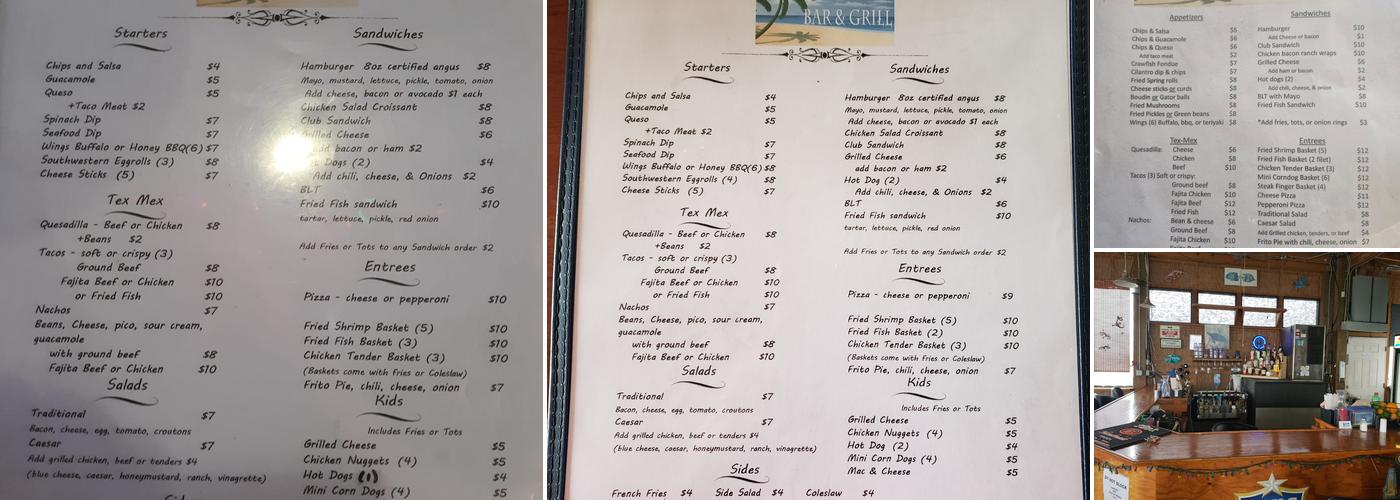 Starters
Chips and Salsa $4
Guacamole $5
Queso $5
+Taco Meat $2
Spinach Dip $7
Seafood Dip $7
Wings Buffalo or Honey BBQ(6) $7
Southwestern Eggrolls (3) $8
Cheese Sticks (5) $7
Tex Mex
Quesadilla - Beef or Chicken $8
+Beans $2
Tacos - soft or crispy (3)
Ground Beef $8
Fajita Beef or Chicken $10
or Fried Fish $10
Nachos $7
Beans, Cheese, pico, sour cream,
guacamole
with ground beef $8
Fajita Beef or Chicken $10
Salads
Traditional $7
Bacon, cheese, egg, tomato, croutons
Caesar $7
Add grilled chicken, beef or tenders $4
(blue cheese, caesar, honeymustard, ranch, vinagrette)
Sandwiches
Hamburger 8oz certified angus $8
Mayo, mustard, lettuce, pickle, tomato, onion
Add cheese, bacon or avocado $1 each
Chicken Salad Croissant $8
Club Sandwich $8
Grilled Cheese $6
add bacon or ham $2
Dogs (2) $4
Add chili, cheese, & Onions $2
BLT $6
Fried Fish sandwich $10
tartar, lettuce, pickle, red onion
Add Fries or Tots to any Sandwich order $2
Entrees
Pizza - cheese or pepperoni $10
Fried Shrimp Basket (5) $10
Fried Fish Basket (3) $10
Chicken Tender Basket (3) $10
(Baskets come with Fries or Coleslaw)
Frito Pie, chili, cheese, onion $7
Kids
Includes Fries or Tots
Grilled Cheese $5
Chicken Nuggets (4) $5
Hot Dogs (1) $4
Mini Corn Dogs (4) $5
BAR & GRILL
Starters
Chips and Salsa $4
Guacamole $5
Queso $5
+Taco Meat $2
Spinach Dip $7
Seafood Dip $7
Wings Buffalo or Honey BBQ(6) $8
Southwestern Eggrolls (4) $8
Cheese Sticks (5) $7
Tex Mex
Quesadilla - Beef or Chicken $8
+Beans $2
Tacos - soft or crispy (3)
Ground Beef $8
Fajita Beef or Chicken $10
or Fried Fish $10
Nachos $7
Beans, Cheese, pico, sour cream,
guacamole
with ground beef $8
Fajita Beef or Chicken $10
Salads
Traditional $7
Bacon, cheese, egg, tomato, croutons
Caesar $7
Add grilled chicken, beef or tenders $4
(blue cheese, caesar, honeymustard, ranch, vinagrette)
Sandwiches
Hamburger 8oz certified angus $8
Mayo, mustard, lettuce, pickle, tomato, onion
Add cheese, bacon or avocado $1 each
Chicken Salad Croissant $8
Club Sandwich $8
Grilled Cheese $6
add bacon or ham $2
Hot Dog (2) $4
Add chili, cheese, & Onions $2
BLT $6
Fried Fish sandwich $10
tartar, lettuce, pickle, red onion
Add Fries or Tots to any Sandwich order $2
Entrees
Pizza - cheese or pepperoni $9
Fried Shrimp Basket (5) $10
Fried Fish Basket (2) $10
Chicken Tender Basket (3) $10
(Baskets come with Fries or Coleslaw)
Frito Pie, chili, cheese, onion $7
Kids
Includes Fries or Tots
Grilled Cheese $5
Chicken Nuggets (4) $5
Hot Dog (2) $4
Mini Corn Dogs (4) $5
Mac & Cheese $5
Sides
French Fries $4 Side Salad $4 Coleslaw $4
Appetizers
Chips & Salsa $5
Chips & Guacamole $6
Chips & Queso $6
Add taco meat $2
Crawfish Fondue $7
Cilantro dip & chips $7
Fried Spring rolls $8
Cheese sticks or curds $8
Boudin or Gator balls $8
Fried Mushrooms $8
Fried Pickles or Green beans $8
Wings (6) Buffalo, bbq, or teriyaki $8
Tex-Mex
Quesadilla: Cheese $6
Chicken $8
Beef $10
Tacos (3) Soft or crispy:
Ground beef $8
Fajita Chicken $10
Fajita Beef $12
Fried Fish $12
Nachos: Bean & cheese $6
Ground Beef $8
Fajita Chicken $10
Sandwiches
Hamburger $10
Add Cheese or bacon $1
Club Sandwich $10
Chicken bacon ranch wraps $10
Grilled Cheese $6
Add ham or bacon $2
Hot dogs (2) $4
Add chili, cheese, & onion $2
BLT with Mayo $8
Fried Fish Sandwich $10
*Add fries, tots, or onion rings $3
Entrees
Fried Shrimp Basket (5) $12
Fried Fish Basket (2 filet) $12
Chicken Tender Basket (3) $12
Mini Corndog Basket (6) $12
Steak Finger Basket (4) $12
Cheese Pizza $11
Pepperoni Pizza $12
Traditional Salad $8
Caesar Salad $8
Add Grilled chicken, tenders, or beef $4
Frito Pie with chili, cheese, onion $7